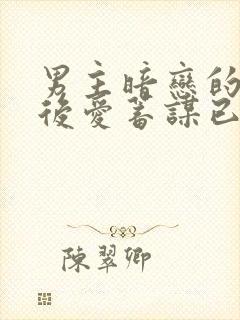 男主暗戀的
後愛蓄謀已
陳翠卿